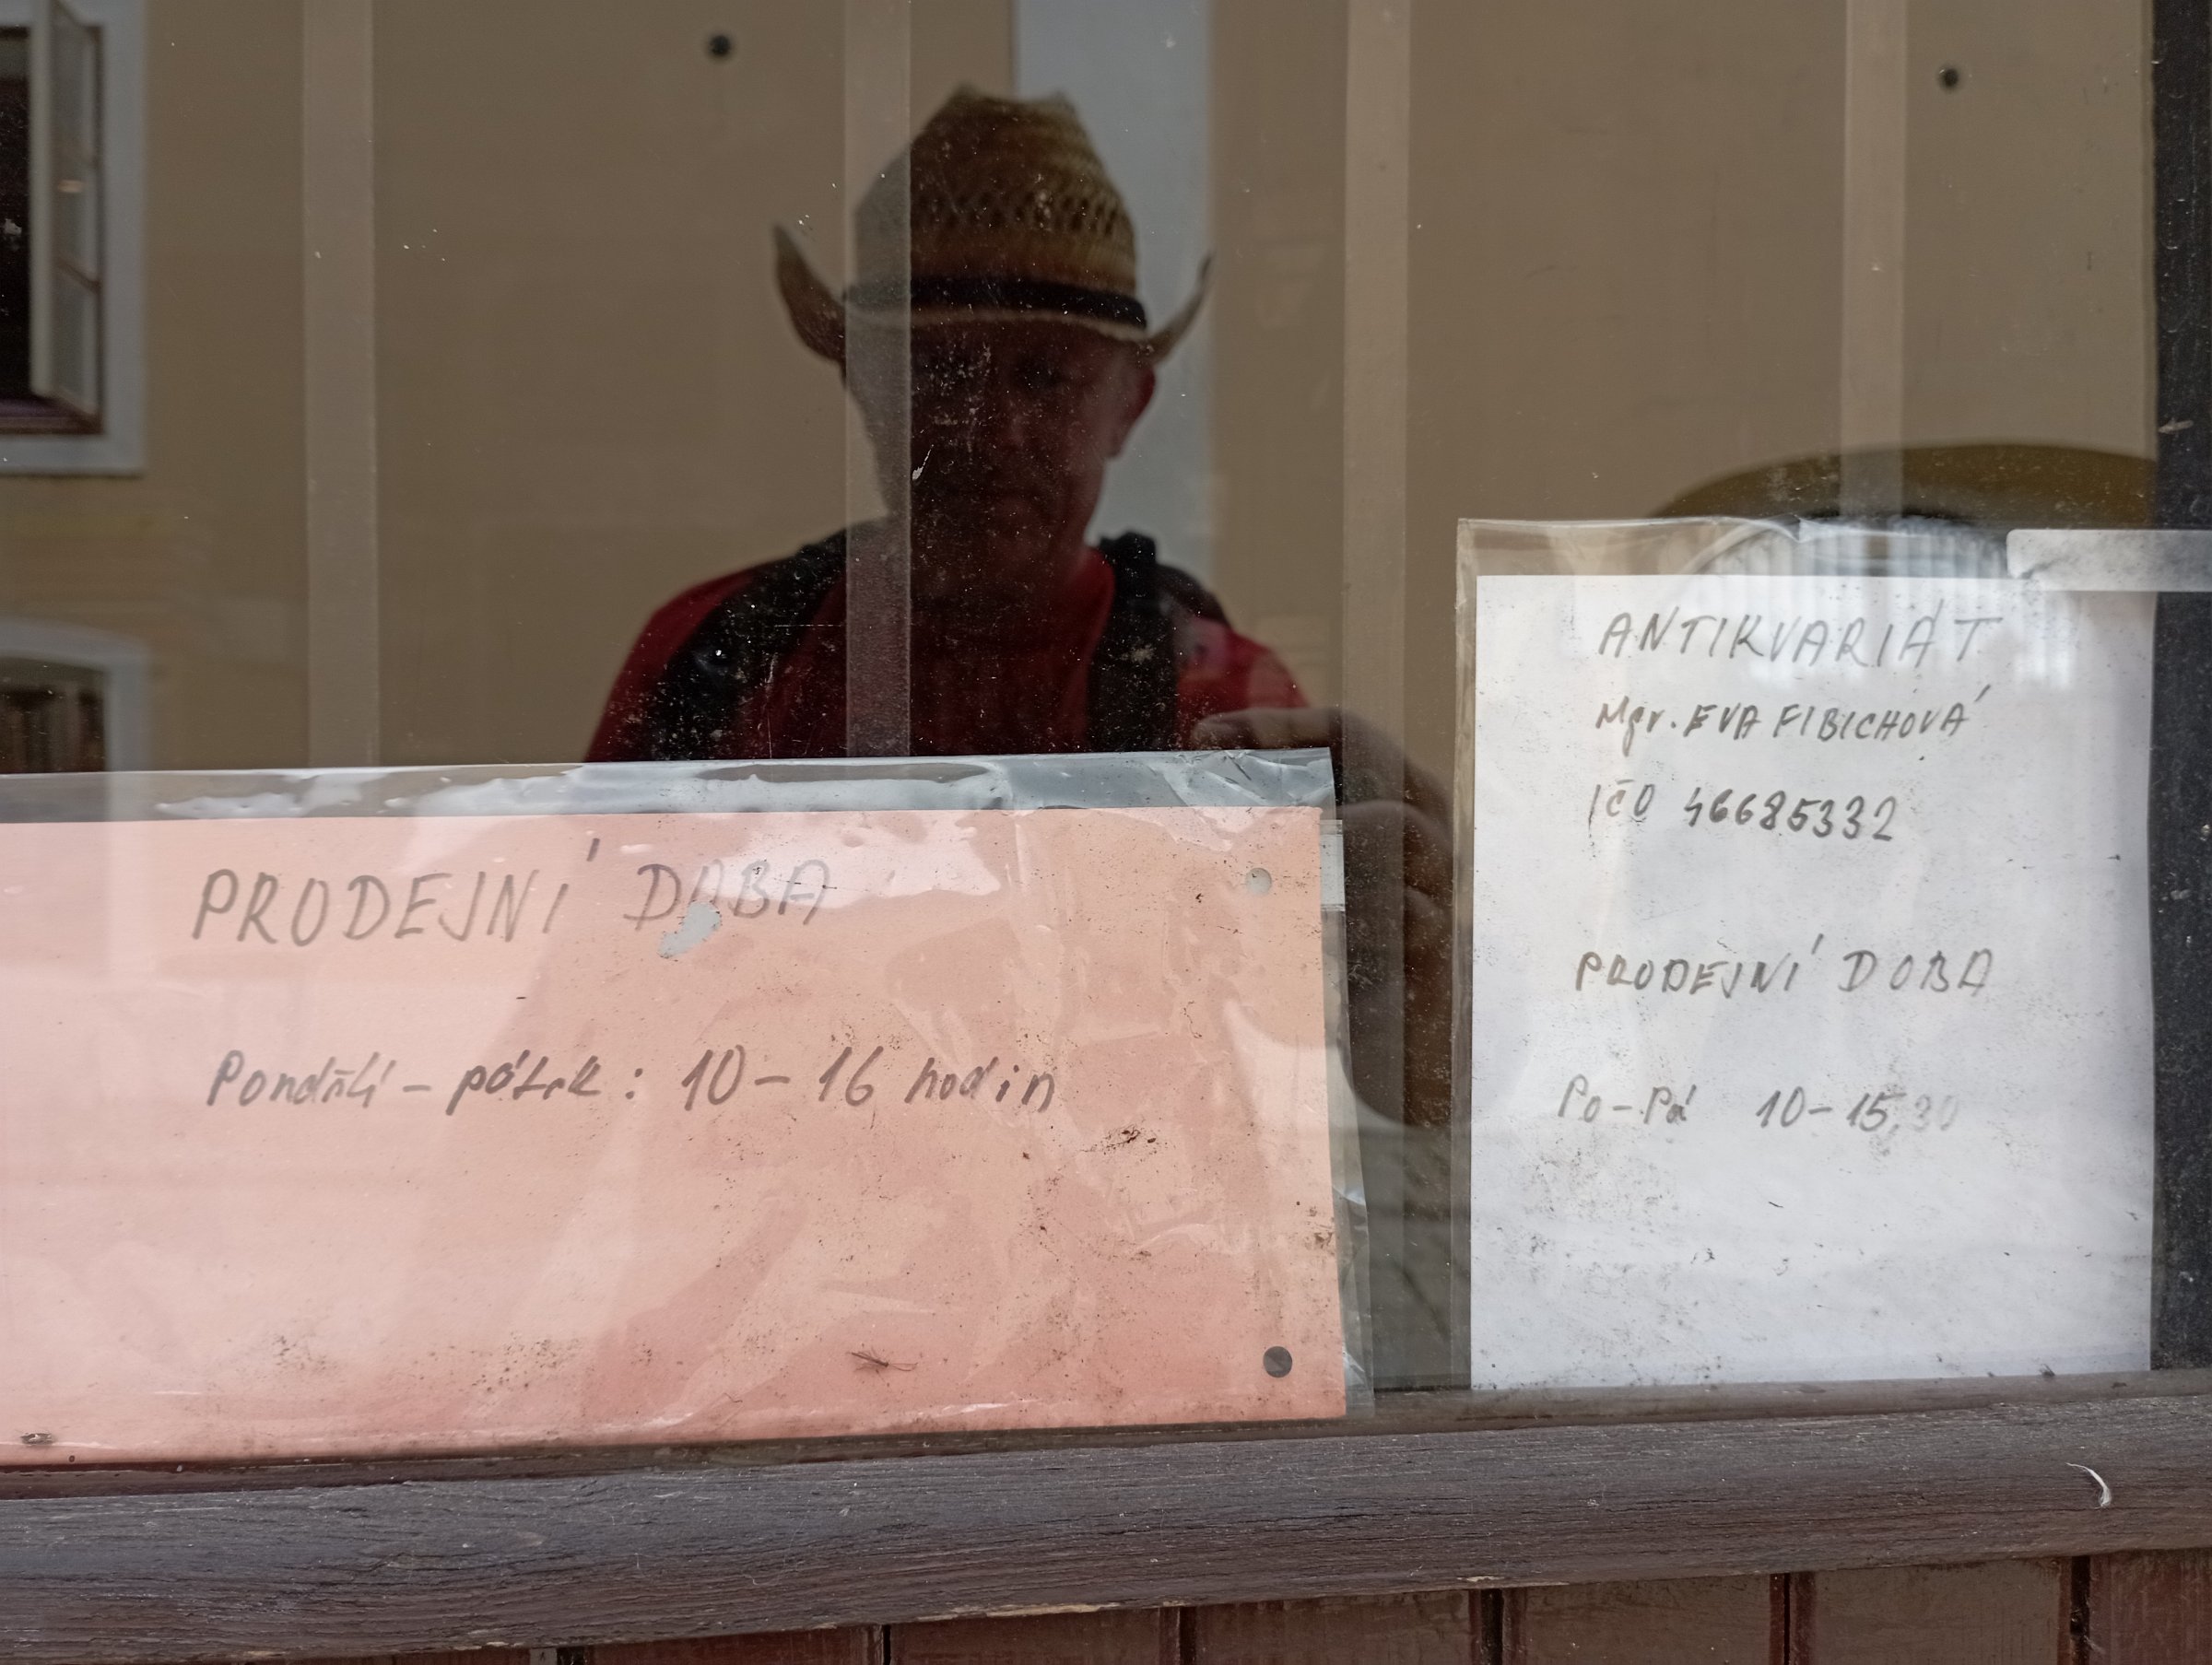 PRODEJNÍ DOBA
Pondělí – pátek : 10 – 16 hodin
ANTIKVARIÁT
Mgr. EVA FIBICHOVÁ
IČO 46685332
PRODEJNÍ DOBA
Po – Pá 10 – 15.30